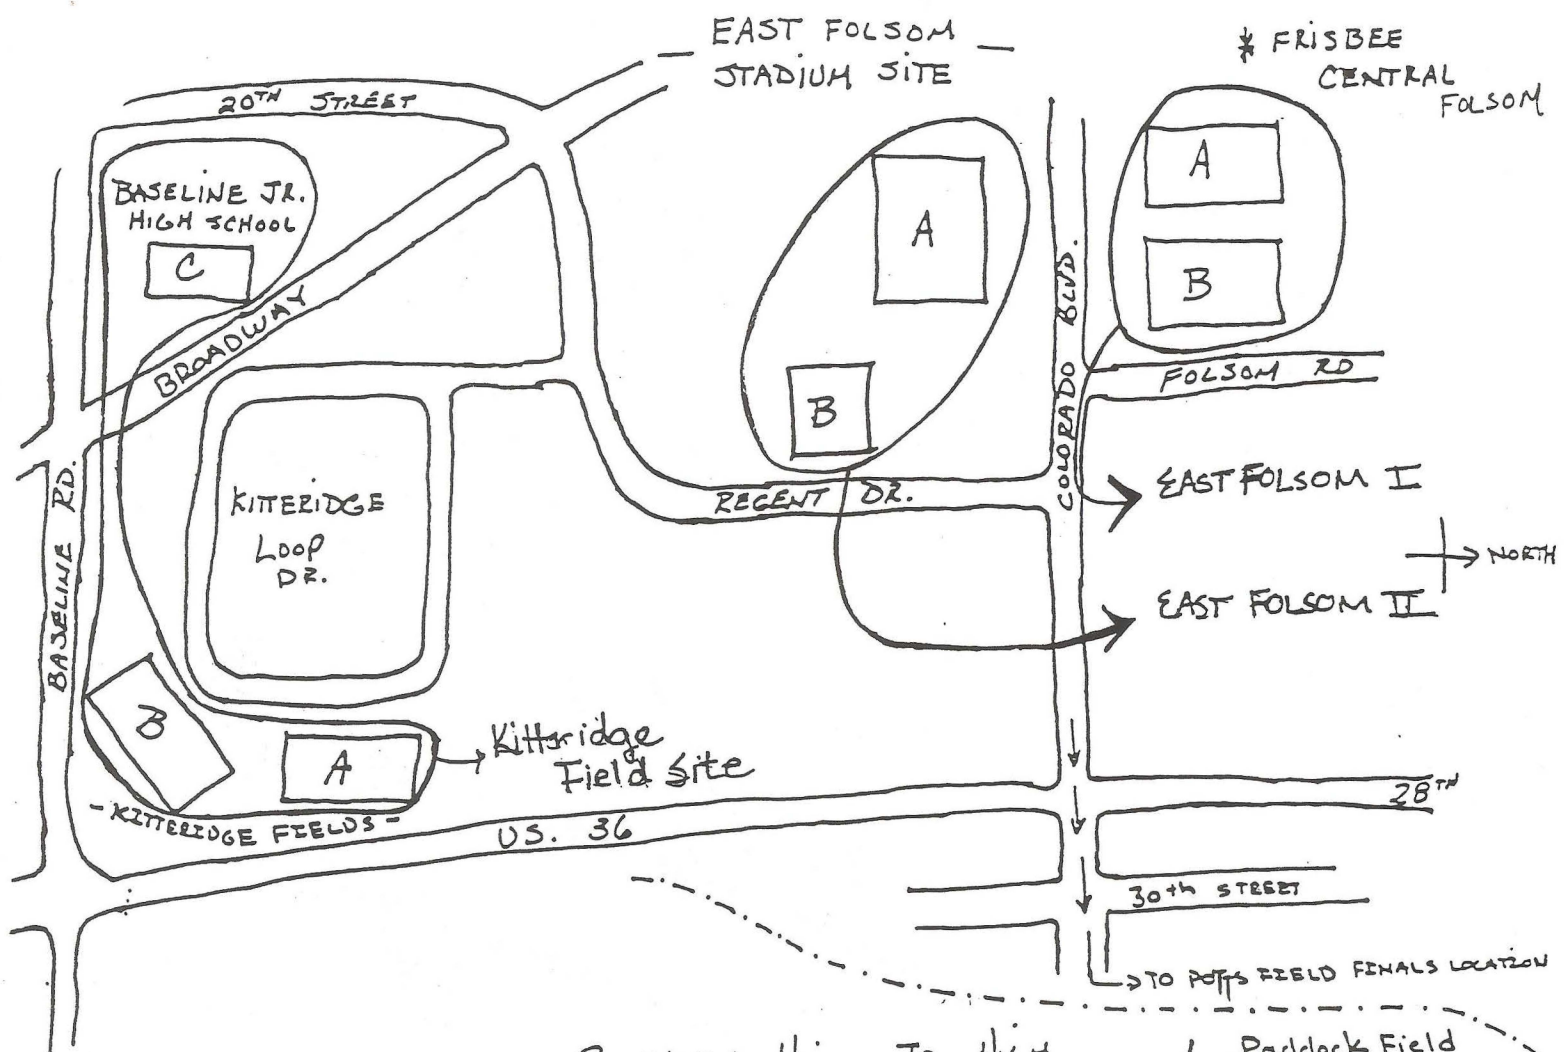 EAST FOLSOM
STADIUM SITE
* FRISBEE
CENTRAL
FOLSOM
20TH STREET
BASELINE JR.
HIGH SCHOOL
C
BROADWAY
A
B
A
B
COLORADO BLVD.
FOLSOM RD
EAST FOLSOM I
NORTH
EAST FOLSOM II
REGENT DR.
KITTERIDGE
LOOP
DR.
BASELINE RD.
B
A
Kittsridge
Field Site
-KITTERIDGE FIELDS-
U.S. 36
28TH
30th STREET
TO POTTS FIELD FINALS LOCATION
Paddock Field